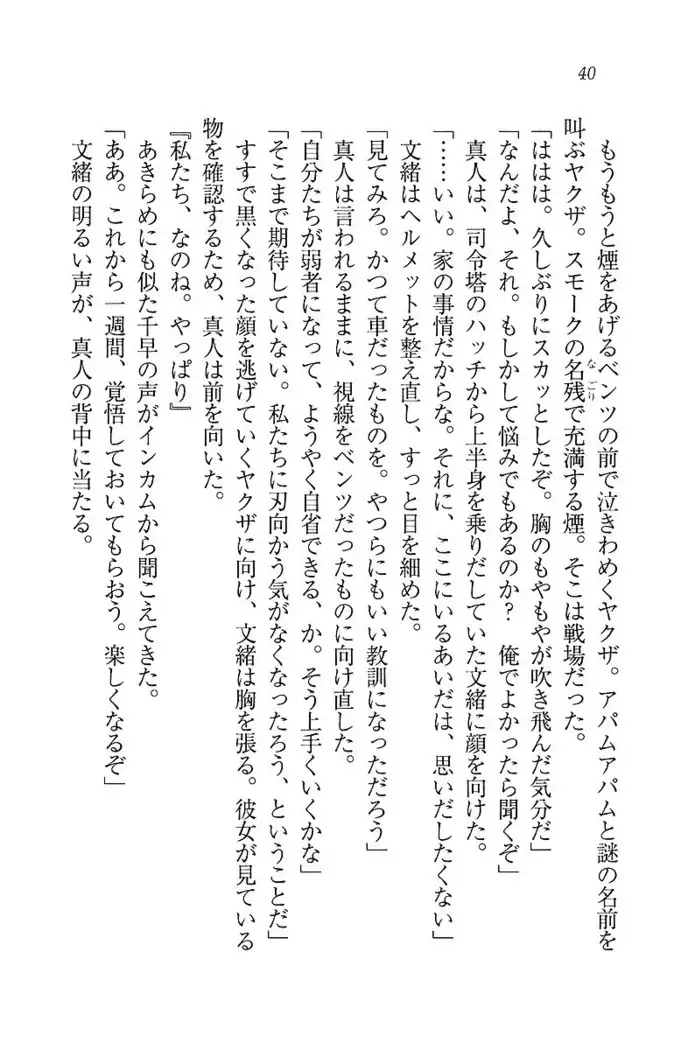 40
もうもうと煙をあげるベンツの前で泣きわめくヤクザ。アパムアパムと謎の名前を
叫ぶヤクザ。スモークの名残で充満する煙。そこは戦場だった。
なごり
「ははは。久しぶりにスカッとしたぞ。胸のもやもやが吹き飛んだ気分だ」
「なんだよ、それ。もしかして悩みでもあるのか？　俺でよかったら聞くぞ」
真人は、司令塔のハッチから上半身を乗りだしていた文緒に顔を向けた。
「……いい。家の事情だからな。それに、ここにいるあいだは、思いだしたくない」
文緒はヘルメットを整え直し、すっと目を細めた。
「見てみろ。かつて車だったものを。やつらにもいい教訓になっただろう」
真人は言われるままに、視線をベンツだったものに向け直した。
「自分たちが弱者になって、ようやく自省できる、か。そう上手くいくかな」
「そこまで期待していない。私たちに刃向かう気がなくなったろう、ということだ」
すすで黒くなった顔を逃げていくヤクザに向け、文緒は胸を張る。彼女が見ている
物を確認するため、真人は前を向いた。
『私たち、なのね。やっぱり』
あきらめにも似た千早の声がインカムから聞こえてきた。
「ああ。これから一週間、覚悟しておいてもらおう。楽しくなるぞ」
文緒の明るい声が、真人の背中に当たる。